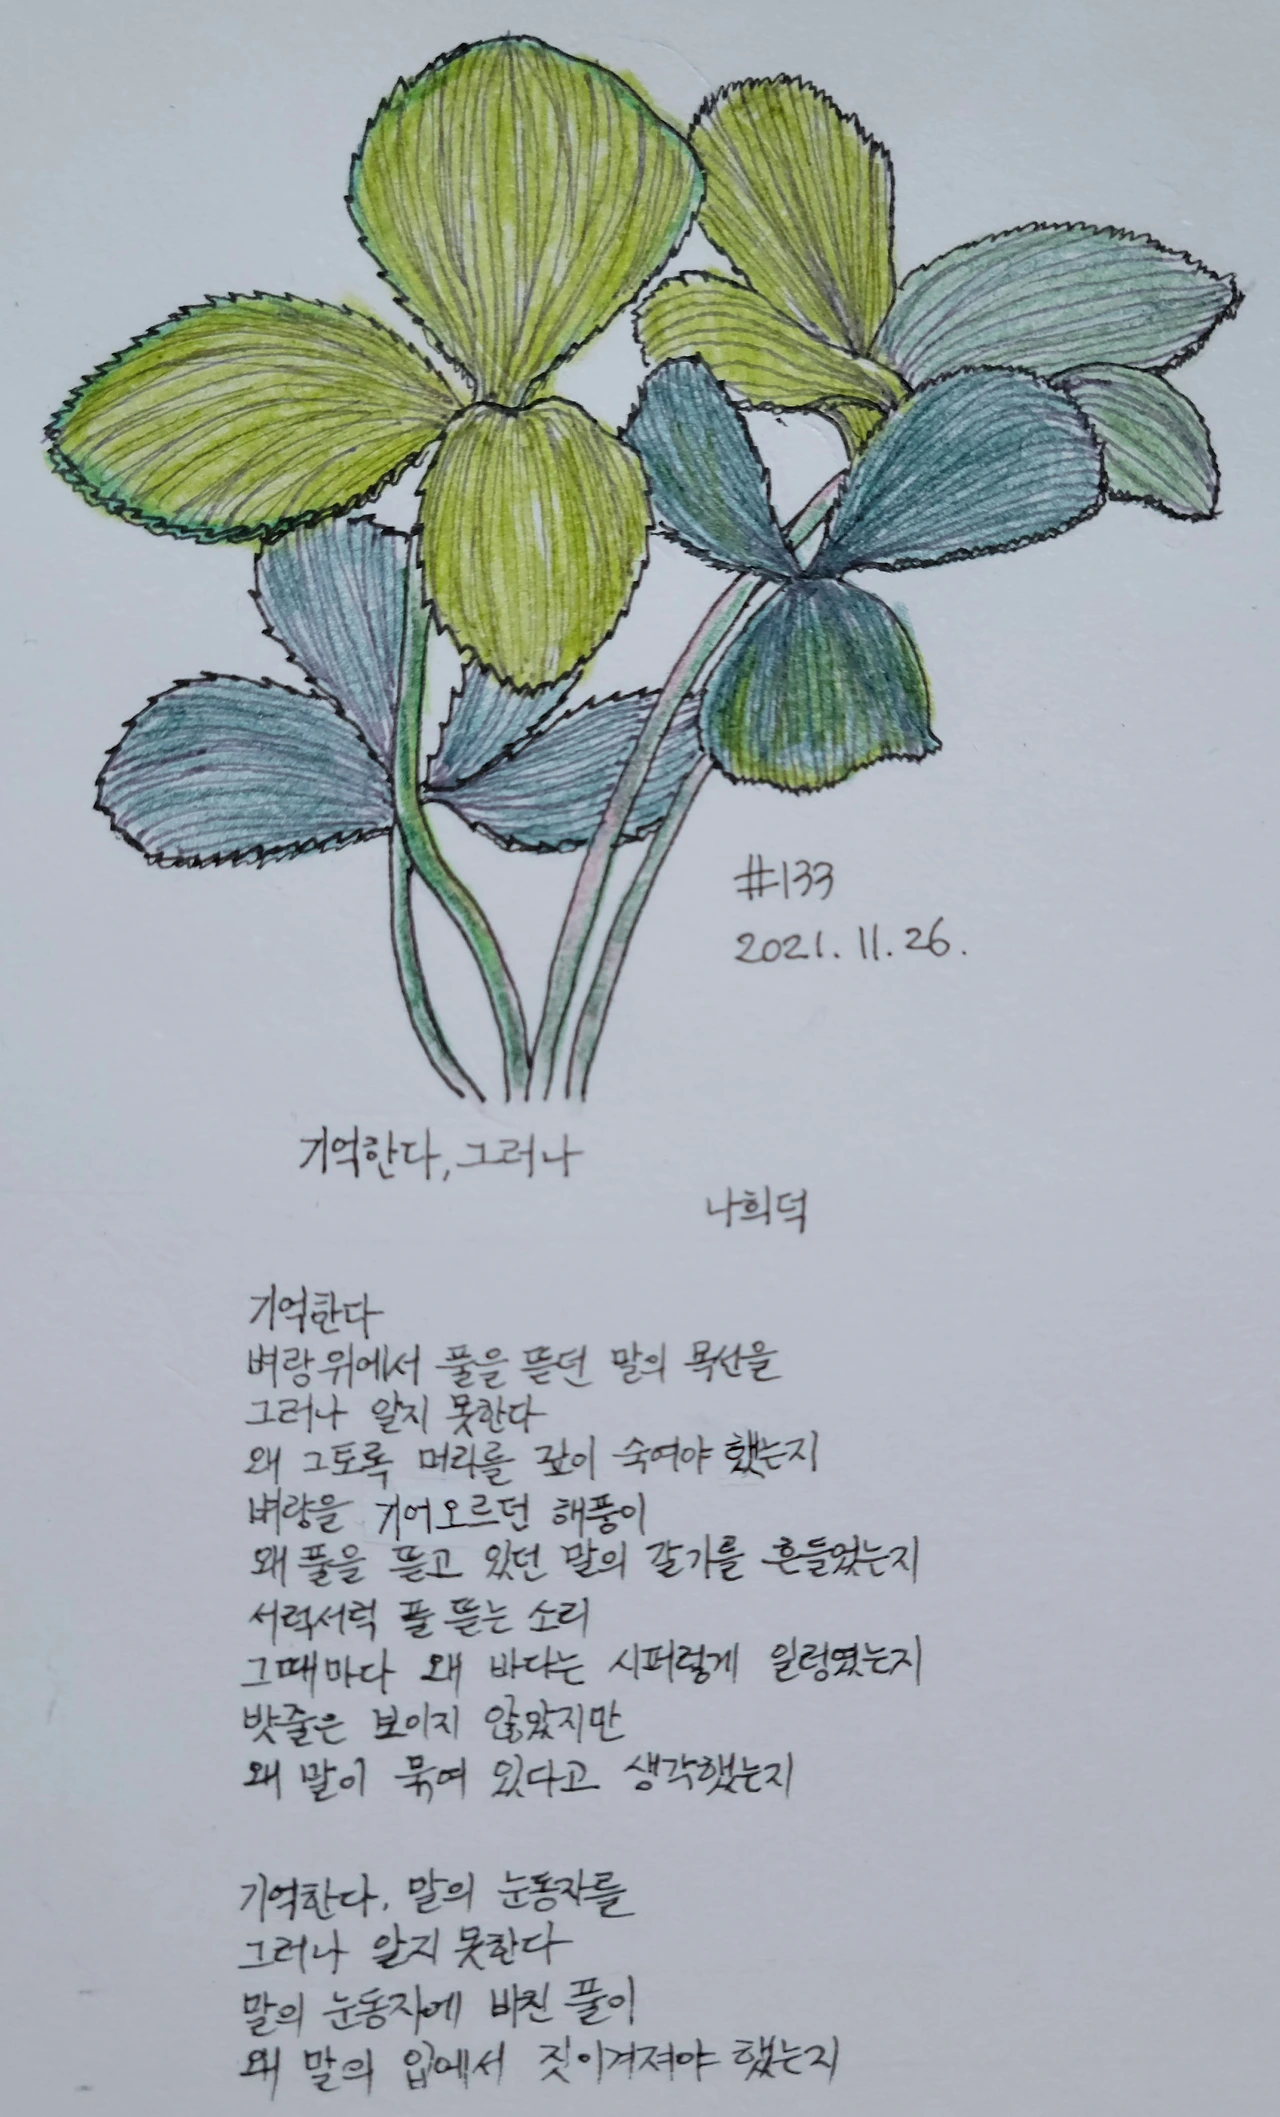 #133
2021. 11. 26.
기억한다, 그러나
나희덕
기억한다
벼랑 위에서 풀을 뜯던 말의 목선을
그러나 알지 못한다
왜 그토록 머리를 깊이 숙여야 했는지
벼랑을 기어오르던 해풍이
왜 풀을 뜯고 있던 말의 갈기를 흔들었는지
서럭서럭 풀 뜯는 소리
그때마다 왜 바다는 시퍼렇게 일렁였는지
밧줄은 보이지 않았지만
왜 말이 묶여 있다고 생각했는지
기억한다, 말의 눈동자를
그러나 알지 못한다
말의 눈동자에 비친 풀이
왜 말의 입에서 짓이겨져야 했는지